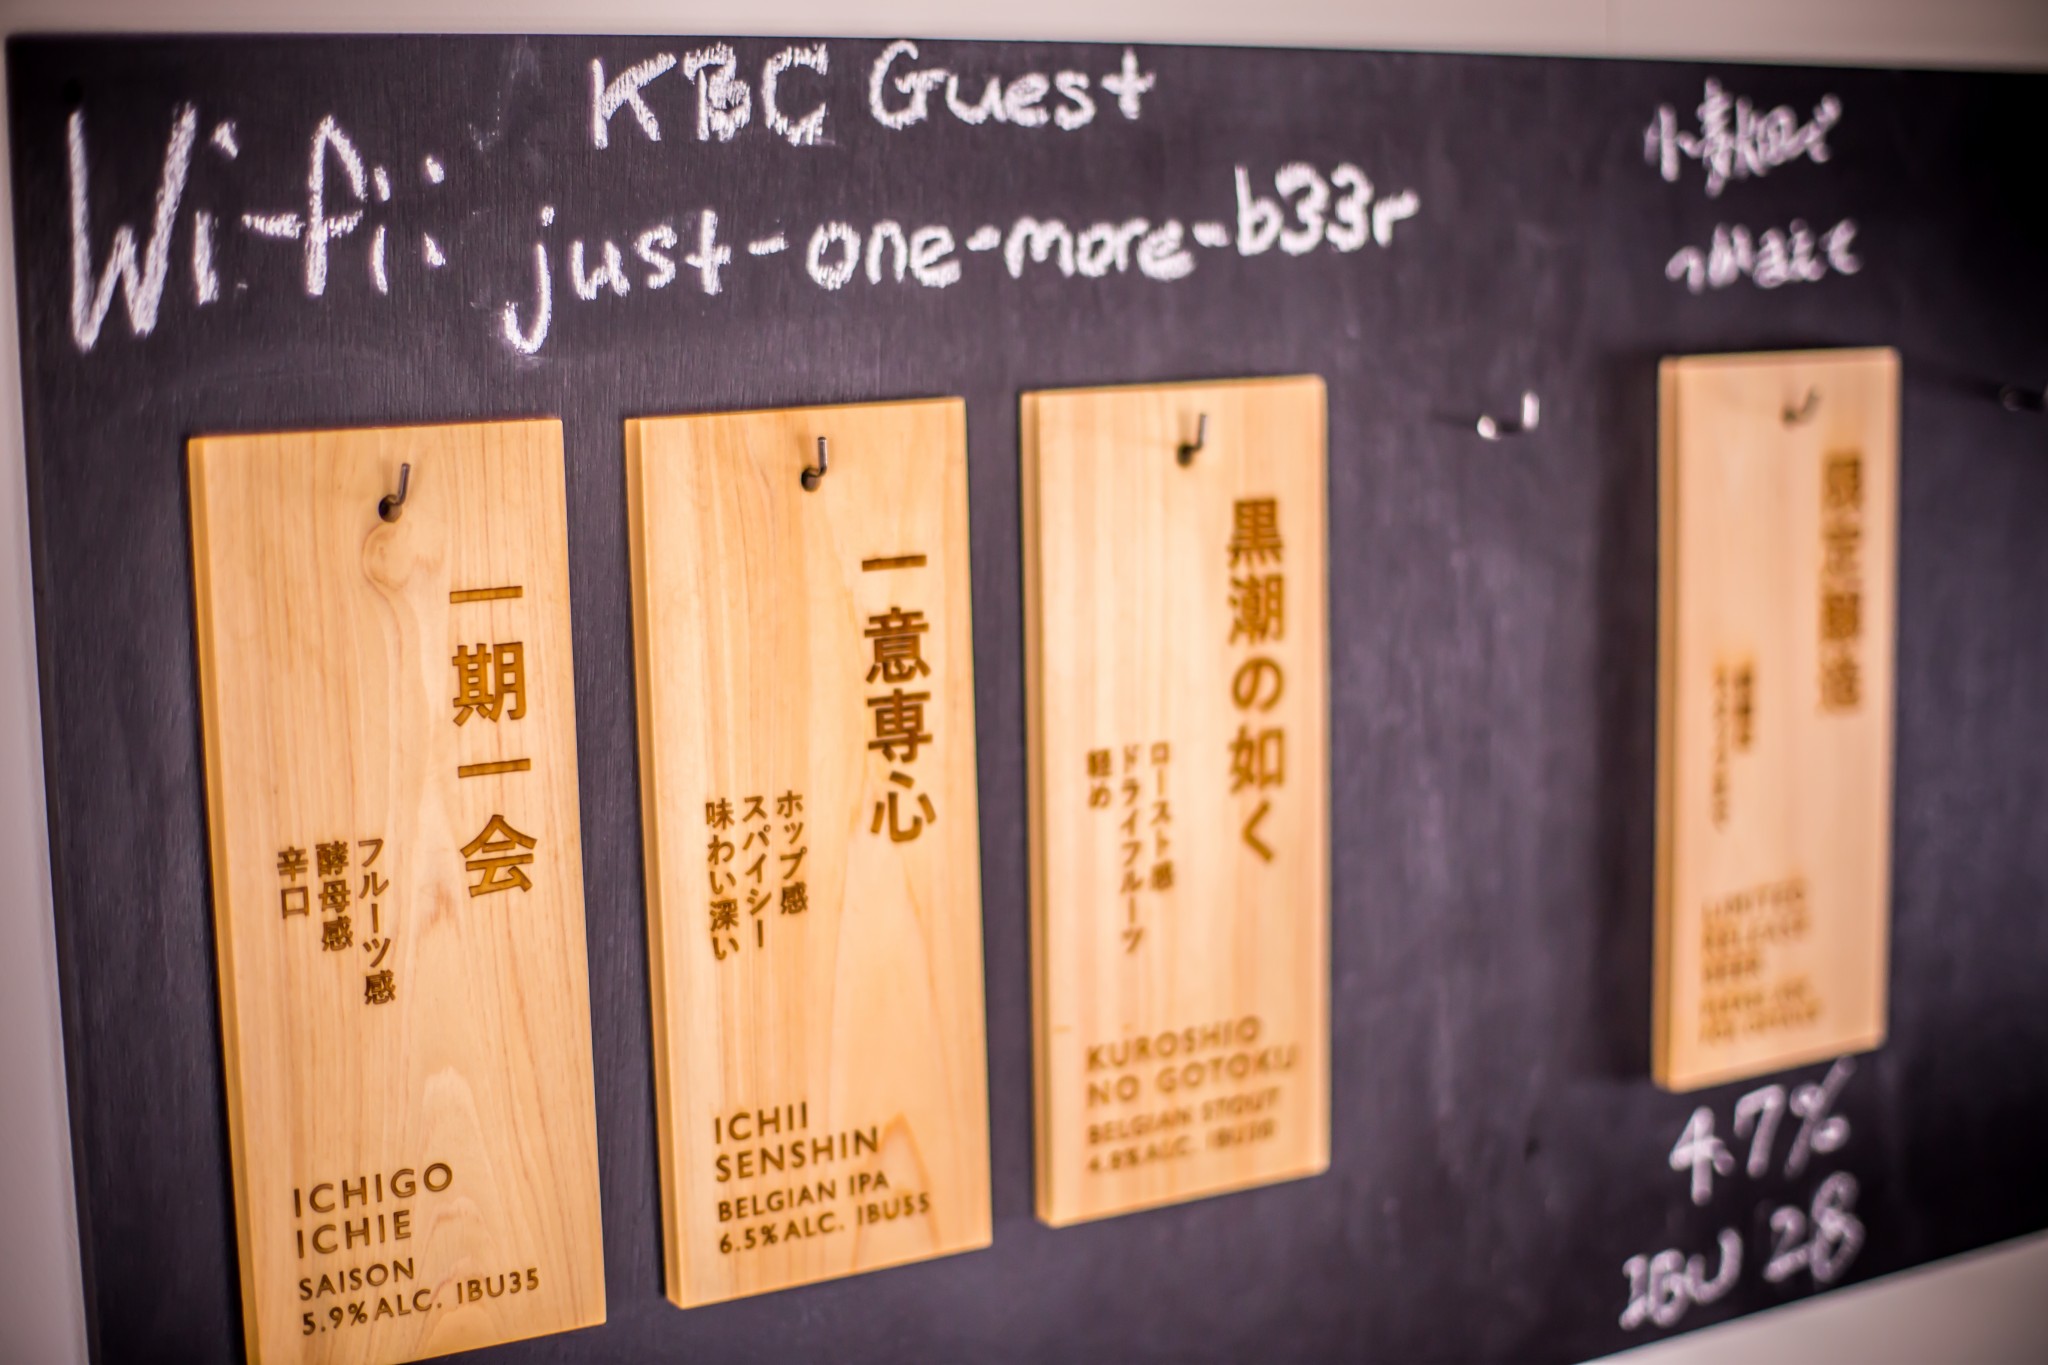 KBC Guest
Wi-Fi: just-one-more-b33r
一期一会
フルーツ感
酵母感
辛口
ICHIGO
ICHIE
SAISON
5.9% ALC. IBU35
一意専心
ホップ感
スパイシー
味わい深い
ICHII
SENSHIN
BELGIAN IPA
6.5% ALC. IBU55
黒潮の如く
ロースト感
ドライフルーツ
軽め
KUROSHIO
NO GOTOKU
BELGIAN STOUT
4.8% ALC.
小麦畑で
つかまえて
限定醸造
LIMITED
RELEASE
BEER
4.7%
IBU 28